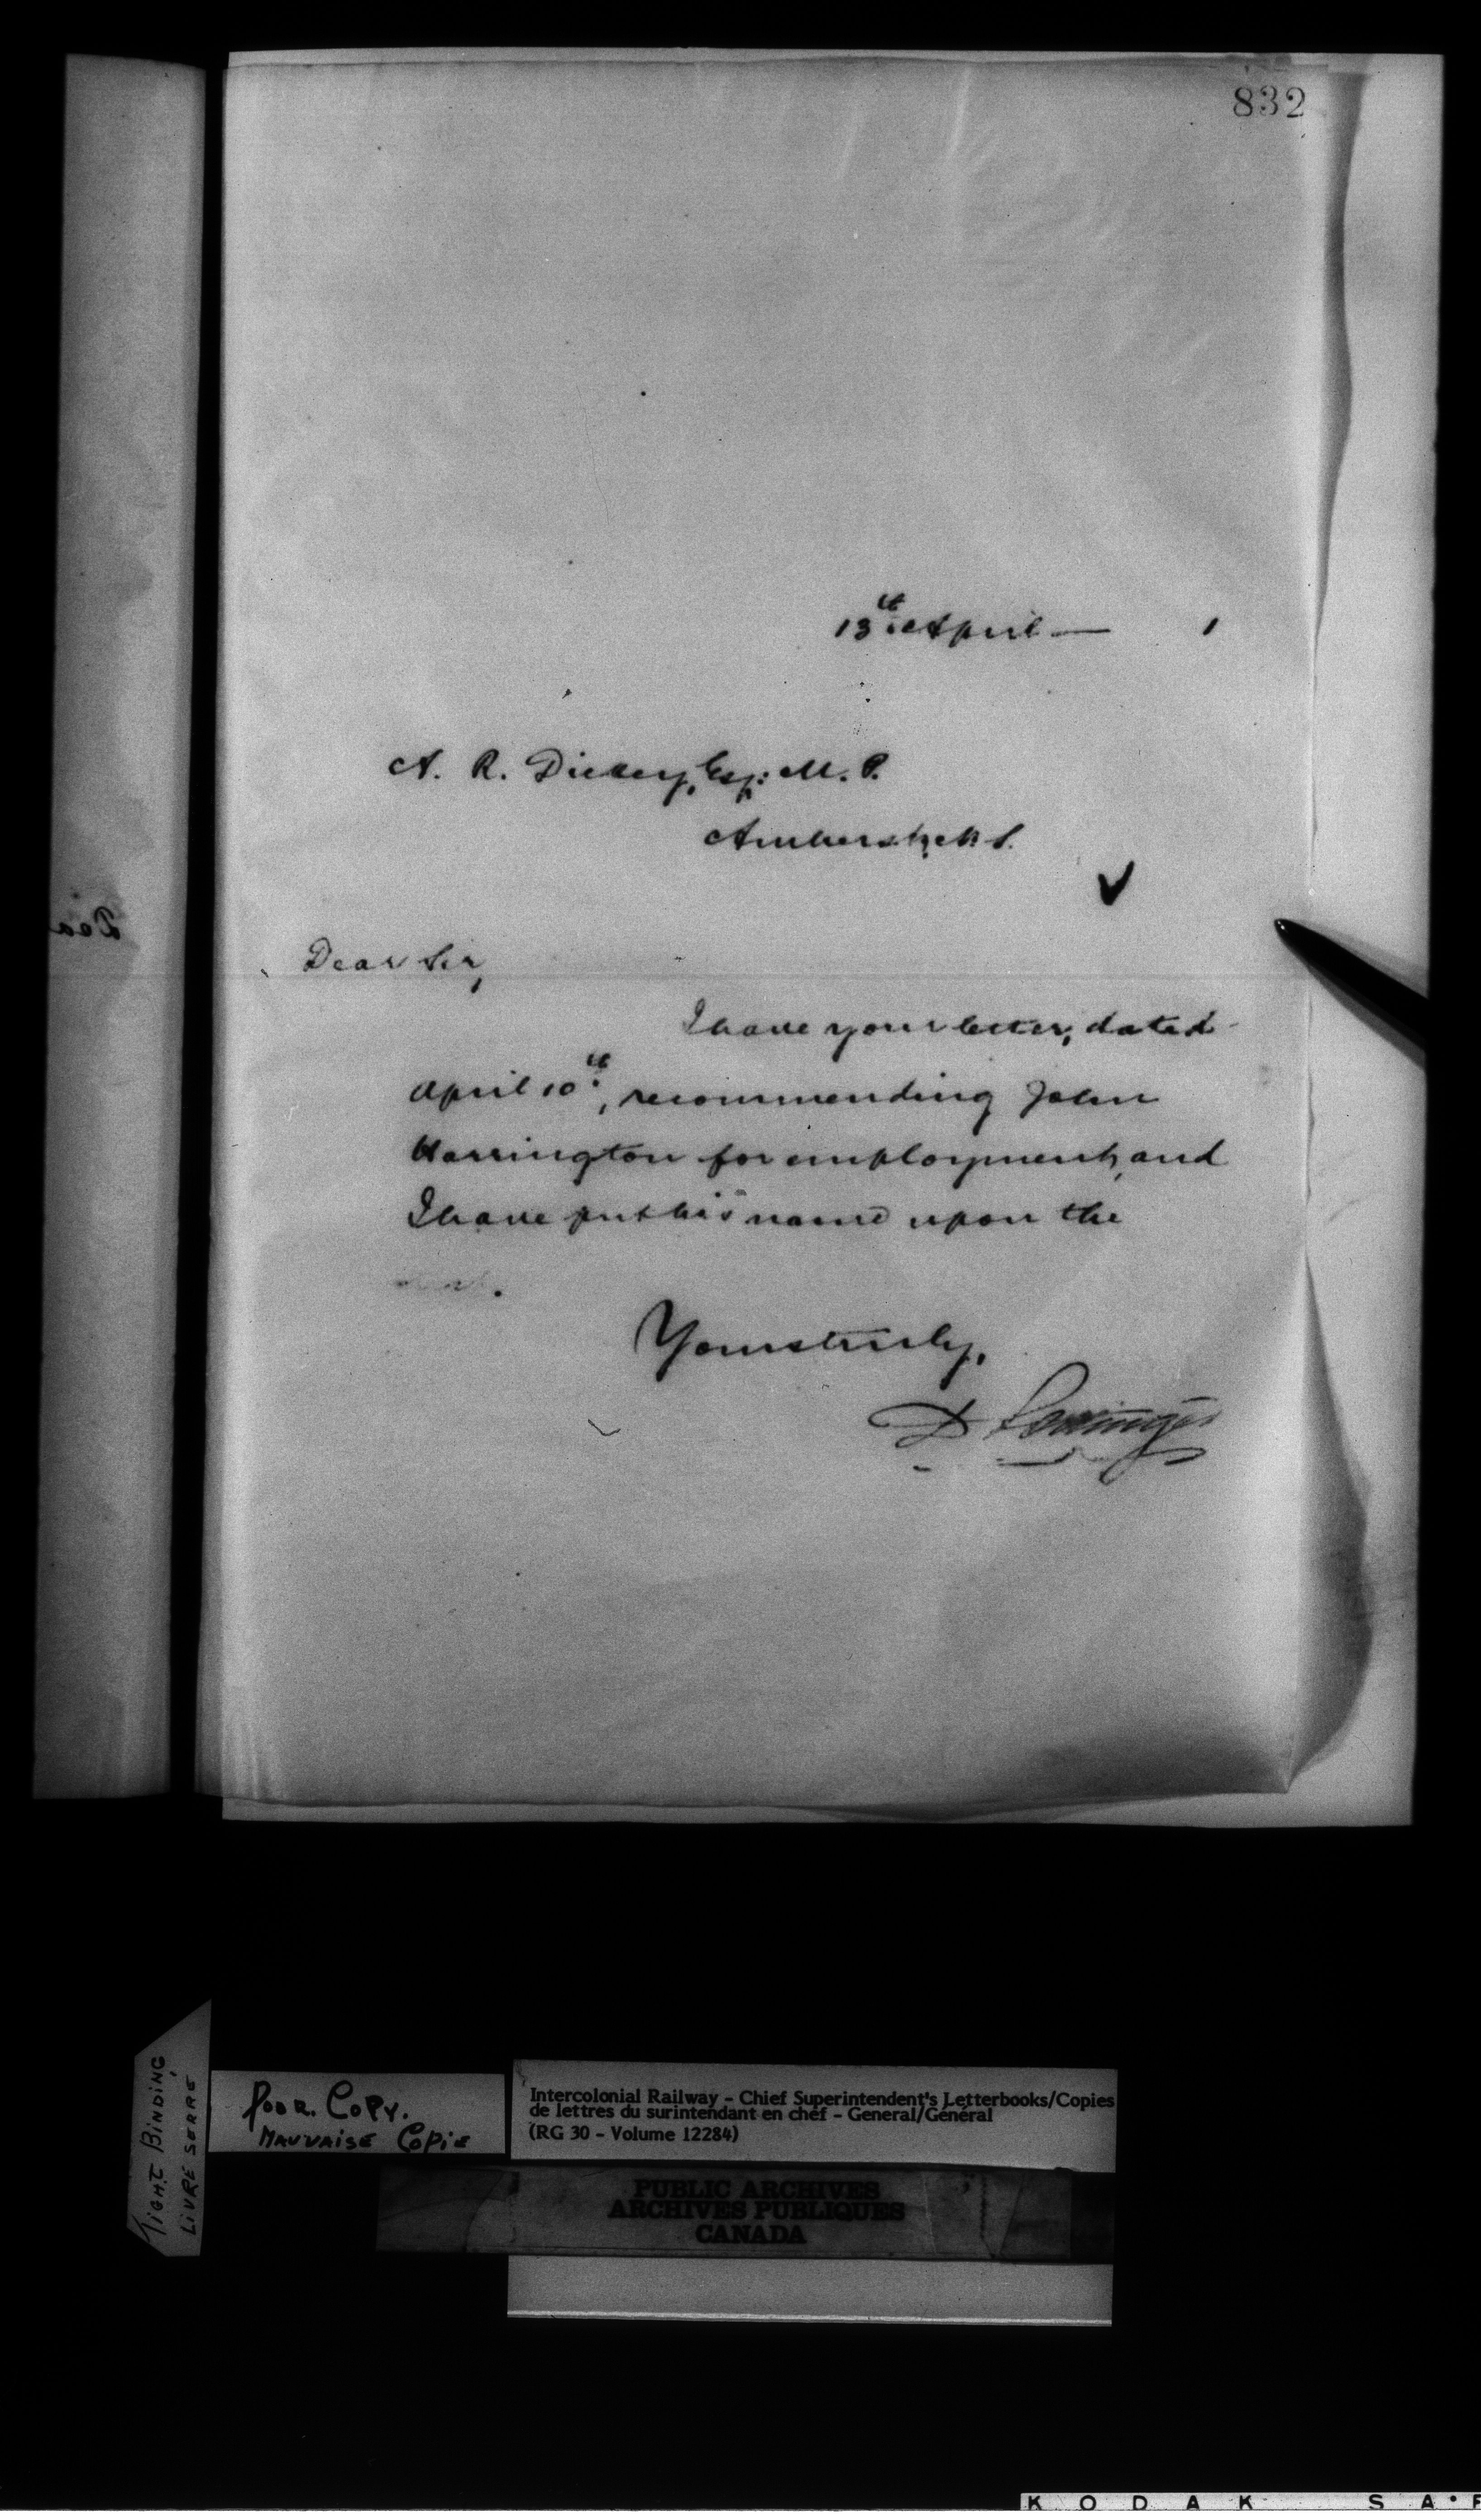 832
13th April — 1
A. R. Dickey, Esq: M. P.
Amherst, N. S.
Dear Sir,
I have your letter, dated
April 10th, recommending John
Harrington for employment, and
I have put his name upon the
Yours truly,
D Pottinger
Dea
TIGHT BINDING
LIVRE SERRÉ
POOR COPY.
MAUVAISE COPIE
Intercolonial Railway - Chief Superintendent's Letterbooks/Copies
de lettres du surintendant en chef - General/Général
(RG 30 - Volume 12284)
PUBLIC ARCHIVES
ARCHIVES PUBLIQUES
CANADA
KODAK SA